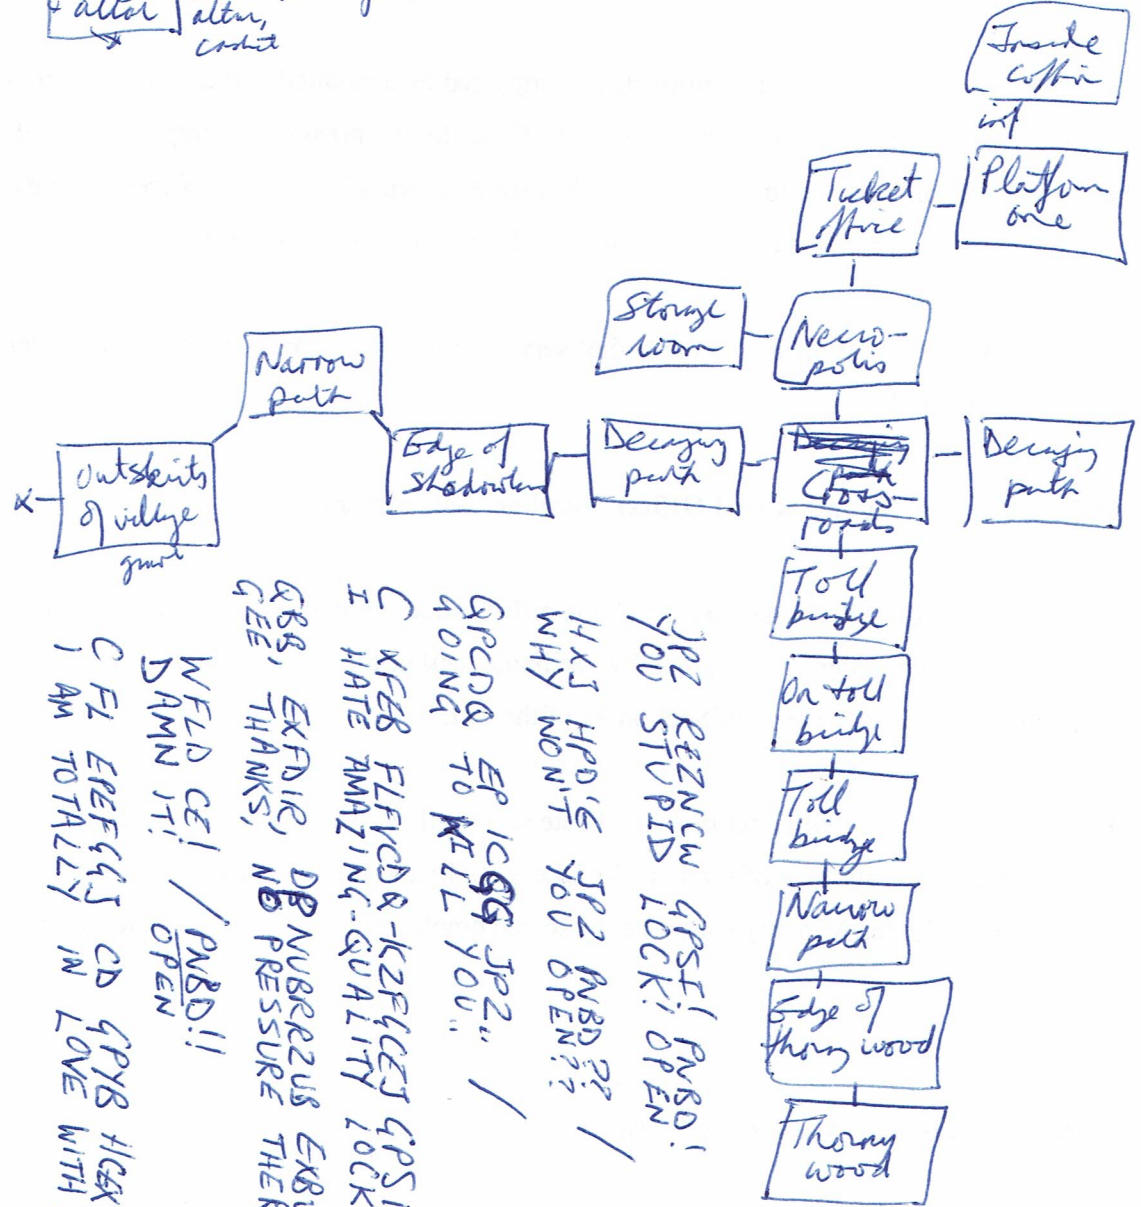 altar
altar,
casket
Inside
coffin
inf
Ticket
office
Platform
one
Storage
room
Necro-
polis
Narrow
path
Outskirts
of village
guard
X
Edge of
Shadowland
Decaying
path
Decaying
path
Cross-
roads
Decaying
path
Toll
bridge
On toll
bridge
Toll
bridge
Narrow
path
Edge of
thorny wood
Thorny
wood
JPZ REZNCW GPSI! PNBD!
YOU STUPID LOCK! OPEN
HXJ HPD'E JPZ PNBD?? /
WHY WON'T YOU OPEN??
GPCDQ EP ICGG JPZ.. /
GOING TO KILL YOU..
C XFEB FLFVCDQ-KZFGCEJ GPSI
I HATE AMAZING-QUALITY LOCK
QBB, EXFDIR, DP NUBRRZUB EXBU
GEE, THANKS, NO PRESSURE THER
WFLD CE! / PNBD!!
DAMN IT! OPEN
C FL EPEFGGJ CD GPYB HCEX
I AM TOTALLY IN LOVE WITH